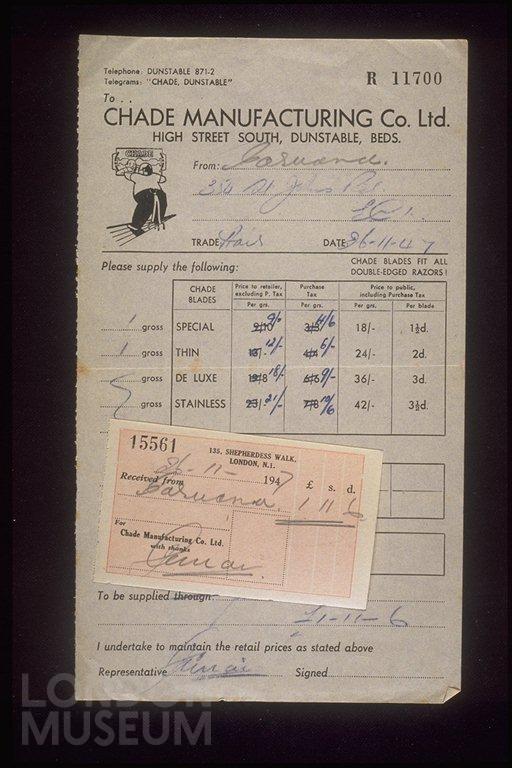 Telephone: DUNSTABLE 871-2
Telegrams: "CHADE, DUNSTABLE"
R 11700
To . .
CHADE MANUFACTURING Co. Ltd.
HIGH STREET SOUTH, DUNSTABLE, BEDS.
CHADE
From: Caruana.
354 St Johns
E.C.1.
TRADE Hair DATE 26-11-47
Please supply the following:
CHADE BLADES FIT ALL
DOUBLE-EDGED RAZORS!
CHADE BLADES Price to retailer, excluding P. Tax Purchase Tax Price to public, including Purchase Tax
Per grs. Per grs. Per grs. Per blade
1 gross SPECIAL 9/10 9/- 3/3 4/6 18/- 1½d.
1 gross THIN 13/- 12/- 4/4 6/- 24/- 2d.
gross DE LUXE 19/8 18/- 6/6 9/- 36/- 3d.
gross STAINLESS 23/- 21/- 7/8 10/6 42/- 3½d.
15561
135, SHEPHERDESS WALK,
LONDON, N.1.
26-11- 1947
£ s. d.
Received from
Caruana 1 11 6
For
Chade Manufacturing Co. Ltd.
with thanks
To be supplied through:
£1-11-6
I undertake to maintain the retail prices as stated above
Representative Signed
LONDON
MUSEUM